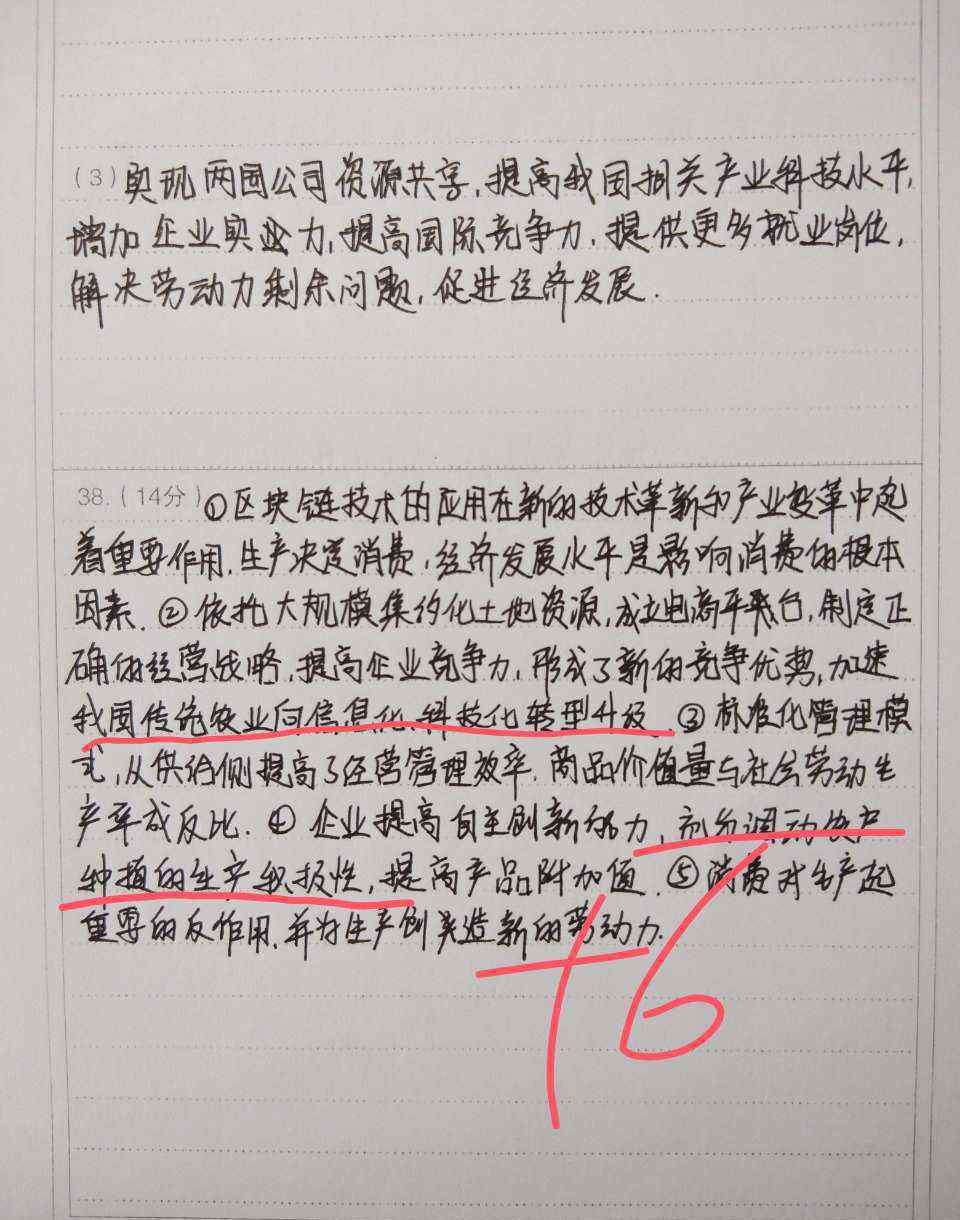 (3) 实现两国公司资源共享,提高我国相关产业科技水平,
增加企业实业力,提高国际竞争力.提供更多就业岗位,
解决劳动力剩余问题,促进经济发展.
38.(14分) ①区块链技术的应用在新的技术革新和产业变革中起
着重要作用.生产决定消费,经济发展水平是影响消费的根本
因素.②依托大规模集约化土地资源,成立电商平台,制定正
确的经营战略,提高企业竞争力,形成了新的竞争优势,加速
我国传统农业向信息化、科技化转型升级.③标准化管理模
式,从供给侧提高了经营管理效率.商品价值量与社会劳动生
产率成反比.④企业提高自主创新能力,充分调动农户
种植的生产积极性,提高产品附加值.⑤消费对生产起
重要的反作用.并为生产创造新的劳动力.
+6